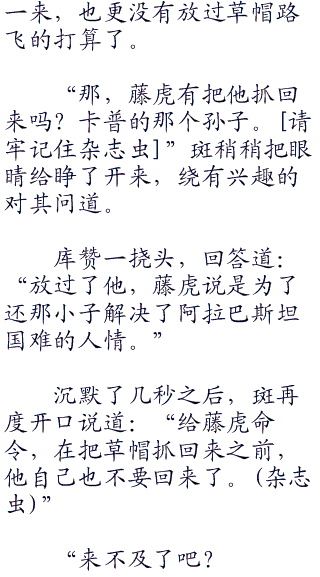 一来，也更没有放过草帽路
飞的打算了。
“那，藤虎有把他抓回
来吗？卡普的那个孙子。[请
牢记住杂志虫]”斑稍稍把眼
睛给睁了开来，绕有兴趣的
对其问道。
库赞一挠头，回答道：
“放过了他，藤虎说是为了
还那小子解决了阿拉巴斯坦
国难的人情。”
沉默了几秒之后，斑再
度开口说道：“给藤虎命
令，在把草帽抓回来之前，
他自己也不要回来了。(杂志
虫)”
“来不及了吧？